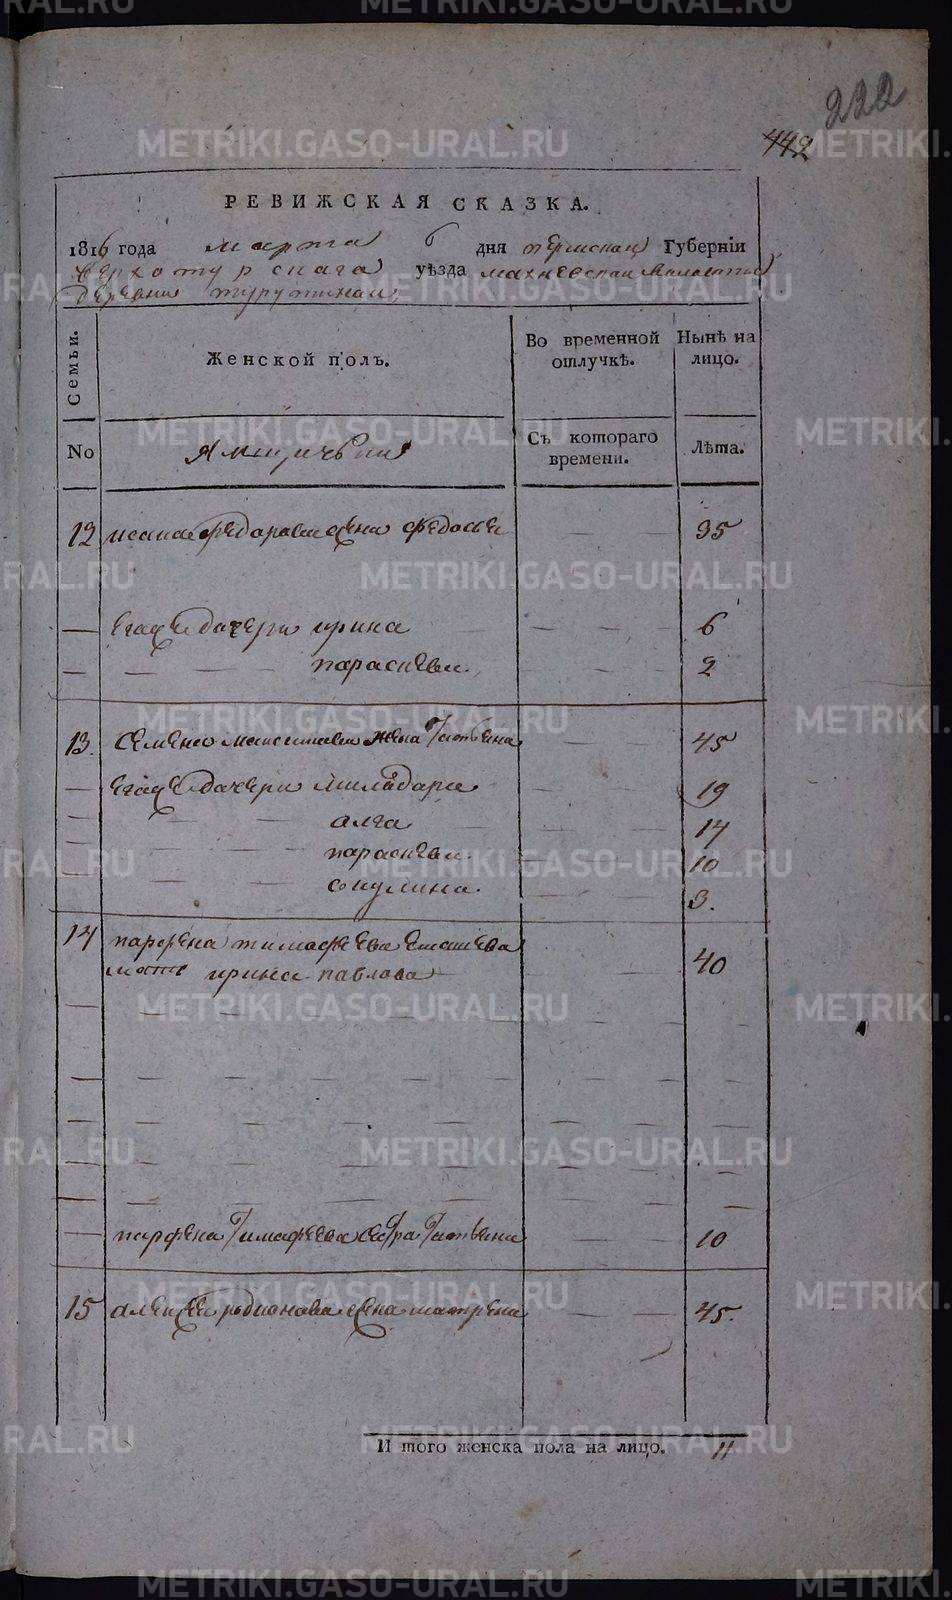 222
442
РЕВИЖСКАЯ СКАЗКА.
1816 года марта 6 дня пермскаи Губерніи
верхотурскага уѣзда махневскаи валасти
деревни турутинаи
Семьи.
Женской полъ.
Во временной отлучкѣ.
Нынѣ на лицо.
No
Съ котораго времени.
Лѣта.
12 федарава жена федосья — — 35
— егаже дачери ирина — — 6
— — — — параскевья — — 2
13. семена максимава жена татьена — — 45
— егаже дачери — — 19
— — — алга — — 14
— — — параскевья — — 10
— — — окулина — — 3.
14 парфена тимафеева
мать ирина павлава — — 40
— парфена тимафеева сестра татьена — — 10
15 алексея родионава жена матрена — — 45.
И того женска пола на лицо. 11
METRIKI.GASO-URAL.RU